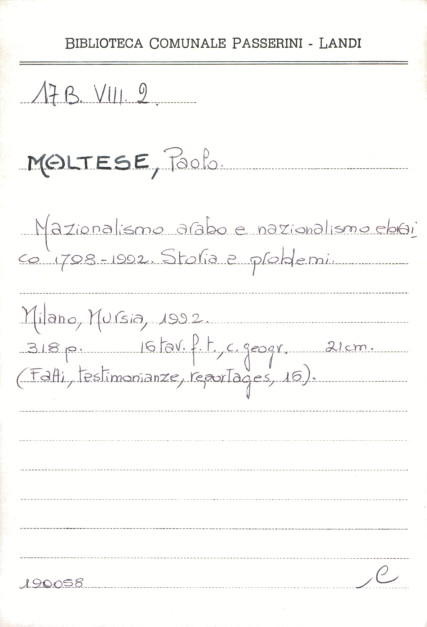 BIBLIOTECA COMUNALE PASSERINI - LANDI
17B. VIII. 2.
MALTESE, Paolo.
Nazionalismo arabo e nazionalismo ebrai
co 1798-1992. Storia e problemi.
Milano, Mursia, 1992.
318 p. 16 tav. f. t., c. geogr. 21 cm.
(Fatti, testimonianze, reportages, 16).
190058